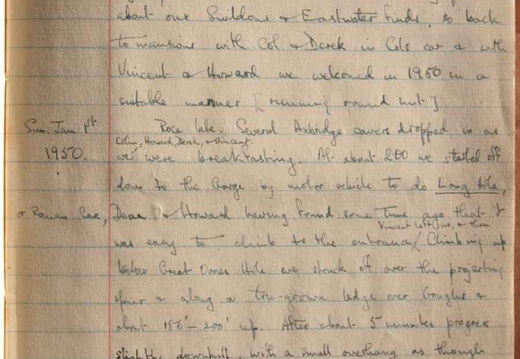 about our Swildons & Eastwater finds, so back
to mansions with Col & Derek in Cols car & with
Vincent & Howard we welcomed in 1950 in a
suitable manner [running round hut].
Sun. Jan 1st 1950.
Rose late. Several Axbridge cavers dropped in as
Colin, Howard, Derek, & Vincent
we were breakfasting. At about 2.00 we started off
down to the Gorge by motor vehicle to do Long Hole,
or Roman Cave,
& Howard having found some time ago that it
Vincent left us, & then
was easy to climb to the entrance. Climbing up
below Great Ones Hole we struck off over the projecting
spur & along a tree-grown ledge over Goughs &
about 150'-200' up. After about 5 minutes progress
slightly downhill, with a small overhang as though